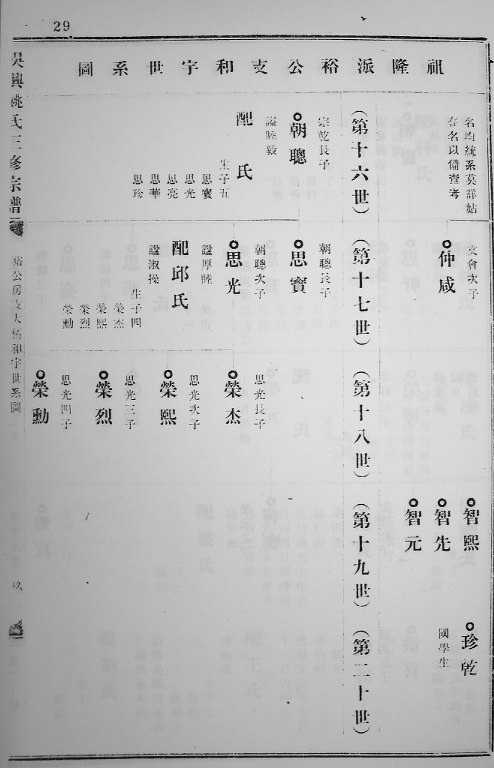 29
祖隆派裕公支和宇世系圖
名均統系莫詳姑
存名以備查考
文會次子
仲咸
智熙
智先
智元
珍乾
國學生
(第十六世)
(第十七世)
(第十八世)
(第十九世)
(第二十世)
宗乾長子
朝聰
諡睦毅
配 氏
生子五
思寶
思光
思亮
思華
思珍
朝聰長子
思寶
朝聰次子
思光
諡厚睦
配邱氏
諡淑操
生子四
榮杰
榮熙
榮烈
榮勳
思光長子
榮杰
思光次子
榮熙
思光三子
榮烈
思光四子
榮勳
吳興姚氏三修宗譜
裕公房支大 和宇世系圖